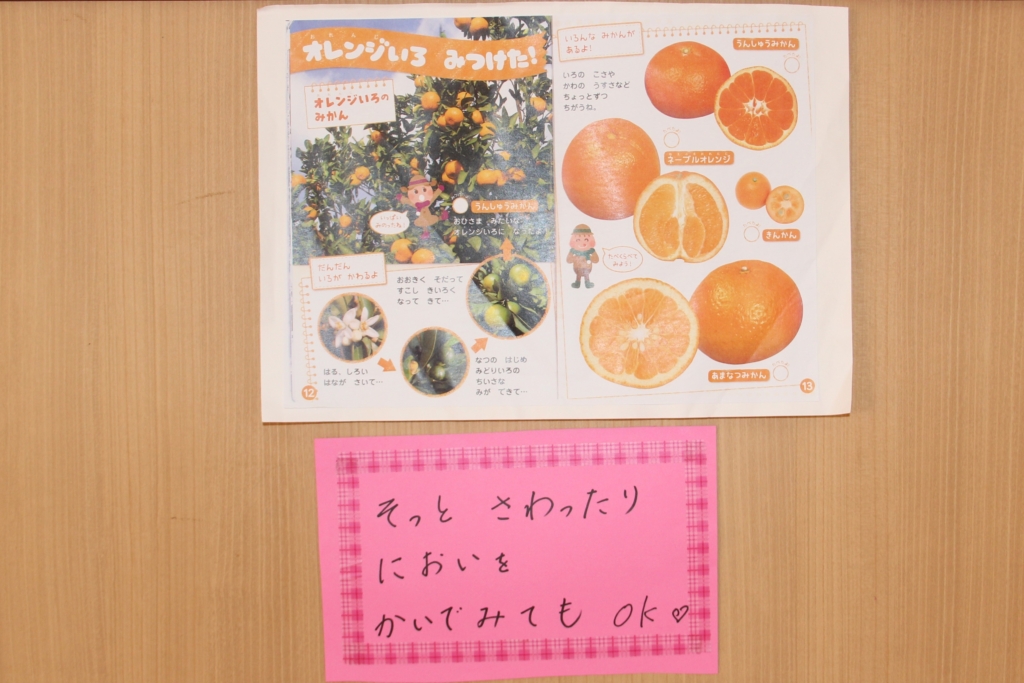 オレンジいろ みつけた!
オレンジいろの
みかん
いっぱい
みのったね!
うんしゅうみかん
おひさま みたいな
オレンジいろに なったよ
だんだん
いろが かわるよ
おおきく そだって
すこし きいろく
なって きて…
はる、しろい
はなが さいて…
なつの はじめ
みどりいろの
ちいさな
みが できて…
12
いろんな みかんが
あるよ!
いろの こさや
かわの うすさなど
ちょっとずつ
ちがうね。
うんしゅうみかん
ネーブルオレンジ
きんかん
たべくらべて
みよう!
あまなつみかん
13
そっと さわったり
においを
かいでみても OK♡